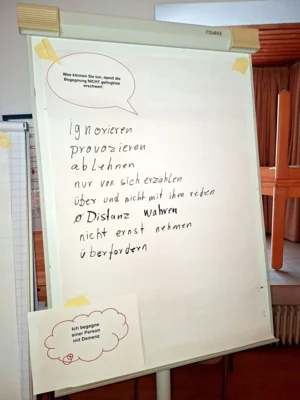 Was können Sie tun, damit die
Begegnung NICHT gelingt/sie
erschwert
ignorieren
provozieren
ablehnen
nur von sich erzählen
über und nicht mit ihm reden
ø Distanz wahren
nicht ernst nehmen
überfordern
Ich begegne
einer Person
mit Demenz